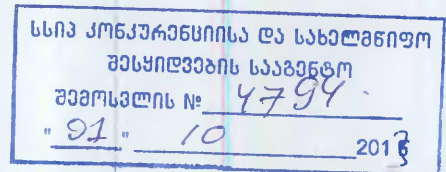 სსიპ კონკურენციისა და სახელმწიფო
შესყიდვების სააგენტო
შემოსვლის № 4794
"01" 10 2013